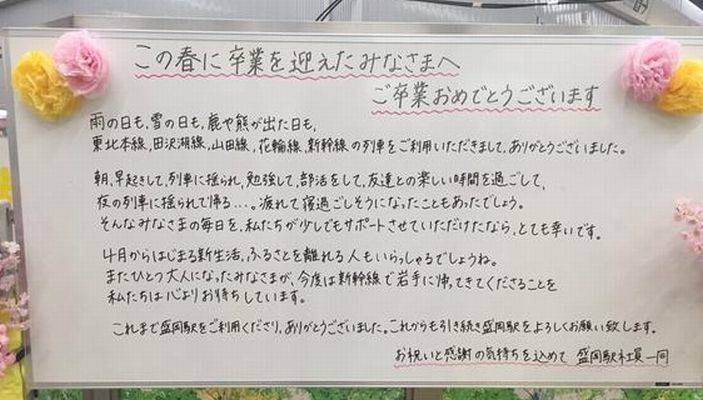 この春に卒業を迎えたみなさまへ
ご卒業おめでとうございます
雨の日も、雪の日も、鹿や熊が出た日も、
東北本線、田沢湖線、山田線、花輪線、新幹線の列車をご利用いただきまして、ありがとうございました。
朝、早起きして、列車に揺られ、勉強して、部活をして、友達との楽しい時間を過ごして、
夜の列車に揺られて帰る…。疲れて寝過ごしそうになったこともあったでしょう。
そんなみなさまの毎日を、私たちが少しでもサポートさせていただけたなら、とても幸いです。
4月からはじまる新生活、ふるさとを離れる人もいらっしゃるでしょうね。
またひとつ大人になったみなさまが、今度は新幹線で岩手に帰ってきてくださることを
私たちは心よりお待ちしています。
これまで盛岡駅をご利用くださり、ありがとうございました。これからも引き続き盛岡駅をよろしくお願い致します。
お祝いと感謝の気持ちを込めて 盛岡駅社員一同